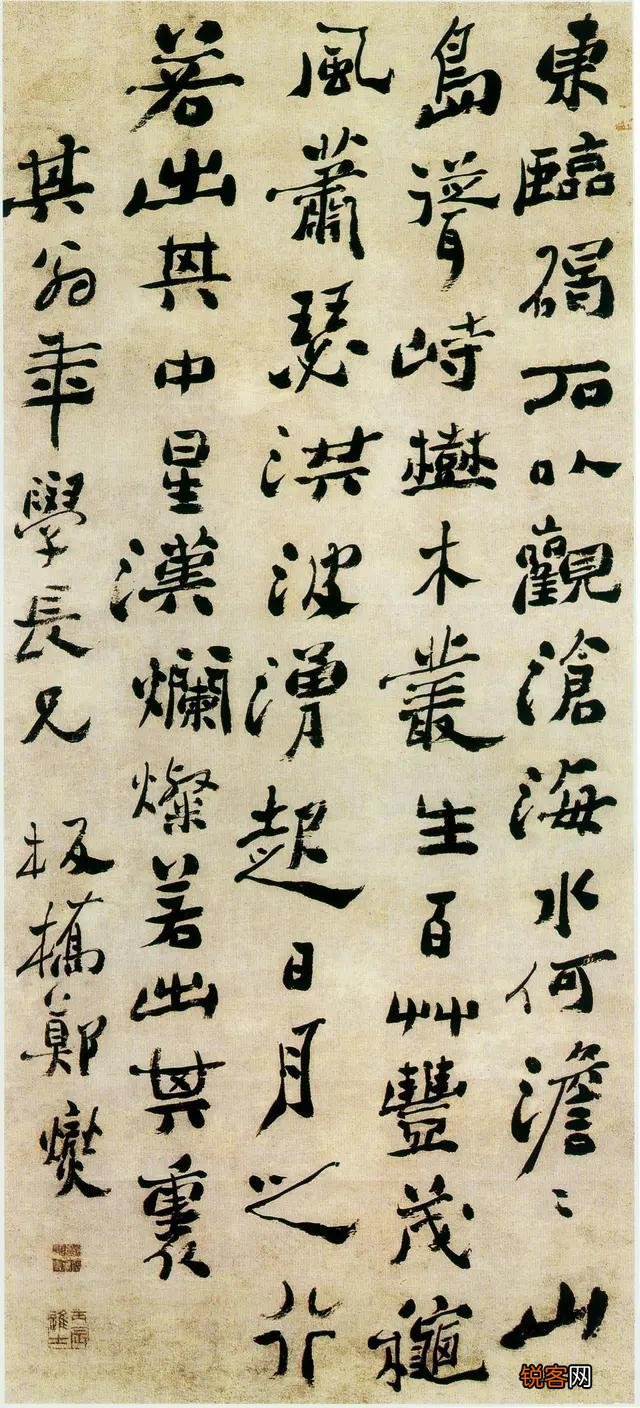 東臨碣石以觀滄海水何澹〻山
島聳峙樹木叢生百艸豐茂穐
風蕭瑟洪波湧起日月之行
若出其中星漢爛燦若出其裏
其翁年學長兄 板橋鄭燮
丙辰進士
锐客网